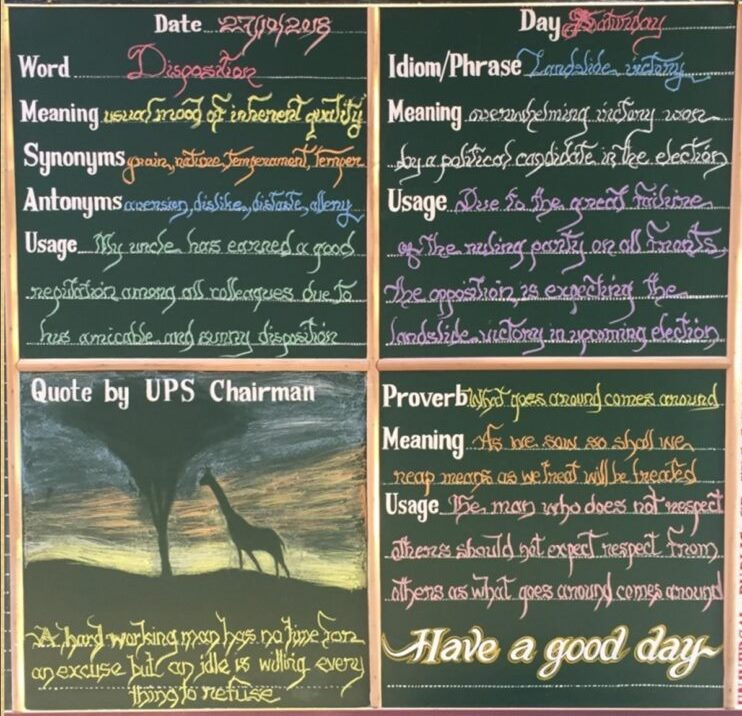 Date 27/10/2018
Word Disposition
Meaning usual mood of inherent quality
Synonyms grain, nature, Temperament, Temper
Antonyms aversion, dislike, distaste,
Usage My uncle has earned a good
reputation among all colleagues due to
his amicable and sunny disposition
Day Saturday
Idiom/Phrase Landslide victory
Meaning overwhelming victory won
by a political candidate in the election
Usage Due to the great failure
of the ruling party on all fronts,
the opposition is expecting the
landslide victory in upcoming election
Quote by UPS Chairman
A hard working man has no time for
an excuse but an idle is willing every
thing to refuse
Proverb What goes around comes around
Meaning As we sow so shall we
reap means as we treat will be treated
Usage The man who does not respect
others should not expect respect from
others as what goes around comes around
Have a good day